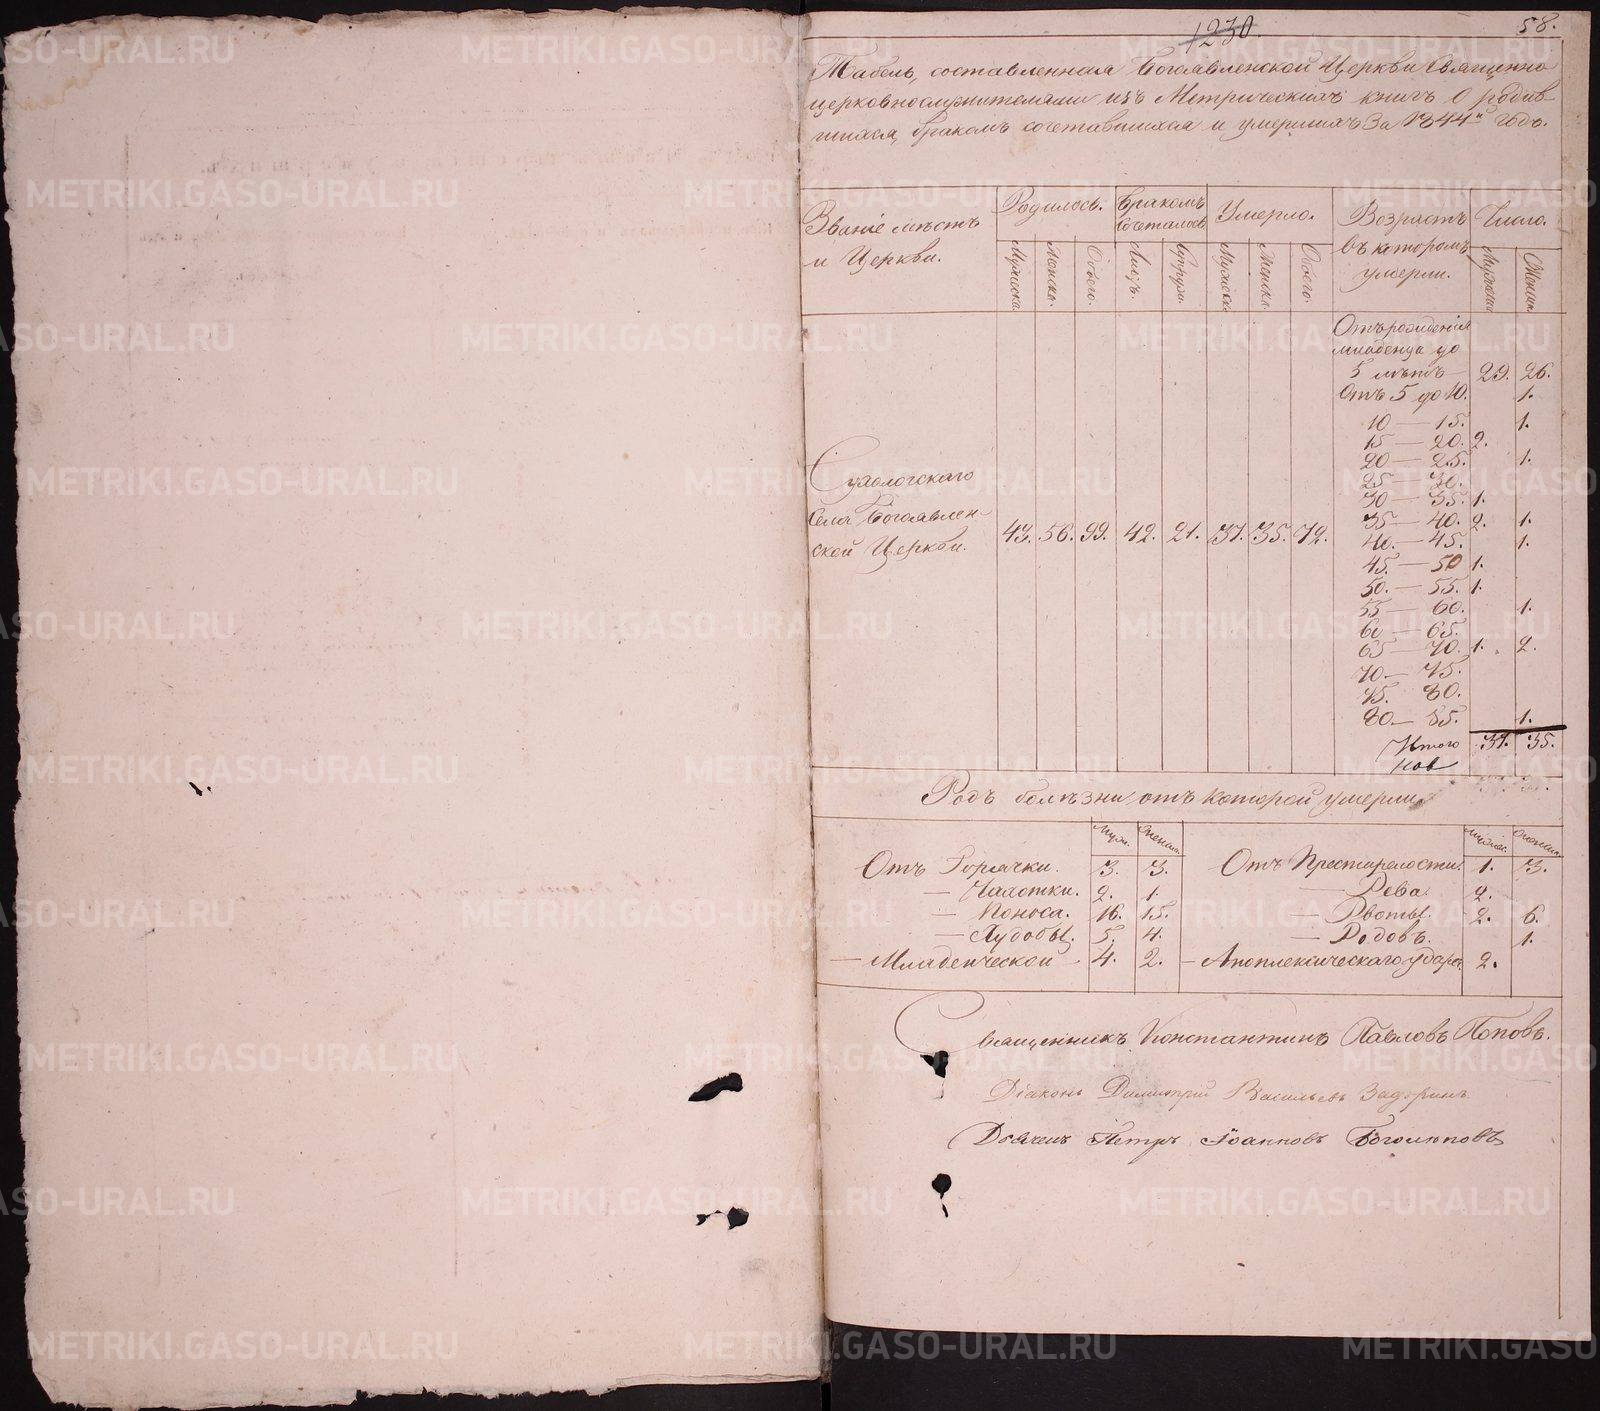 1230.
58.
Табель, составленная Богоявленской Церкви Священно
церковнослужителями изъ Метрическихъ книгъ о родив-
шихся, бракомъ сочетавшихся и умершихъ За 1844й годъ.
Званіе мѣстъ
и Церкви.
Родилось.
Бракомъ
сочеталось
Умерло.
Возрастъ
въ которомъ
умерли.
Число.
Мужеска.
Женска.
Обоего.
Лицъ.
Супруж.
Мужеска.
Женска.
Обоего.
Мужеска
Женска.
Сухологскаго
Села Богоявлен-
ской Церкви.
43. 56. 99. 42. 21. 37. 35. 72.
Отъ рожденія
младенца до
5 лѣтъ 29. 26.
Отъ 5 до 10. 1.
10 — 15. 1.
15 — 20. 2.
20 — 25. 1.
25 — 30.
30 — 35. 1.
35 — 40. 2. 1.
40. — 45. 1.
45. — 50 1.
50. — 55. 1.
55 — 60. 1.
60 — 65.
65 — 70. 1. 2.
70. — 75.
75. 80.
80. — 85. 1.
Итого 37. 35.
Родъ болѣзни, отъ которой умерли.
Муж. Женск. Мужес. Женск.
Отъ Горячки. 3. 3. Отъ Престарелости. 1. 3.
— Чахотки. 2. 1. — Рева. 2.
— Поноса. 16. 15. — Рвоты. 2. 6.
— Худобы. 5. 4. — Родовъ. 1.
— Младенческой 4. 2. — Апоплексическаго удара. 2.
Священникъ Константинъ Павловъ Поповъ.
Діаконъ Димитрій Васильевъ Задоринъ
Дьячекъ Петръ Іоанновъ Боголюповъ
METRIKI.GASO-URAL.RU